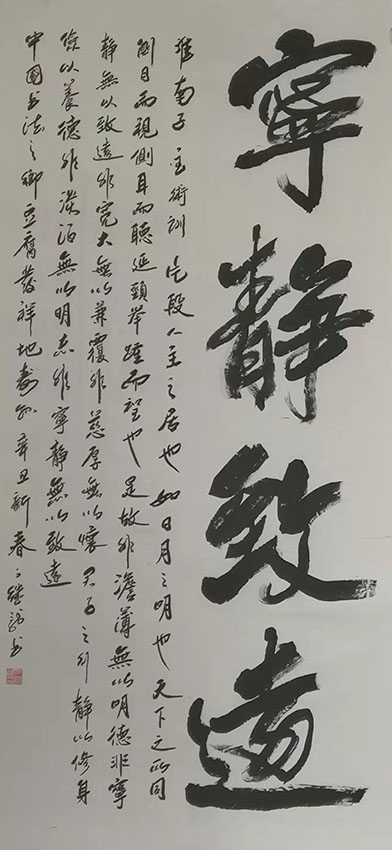 寧靜致遠
淮南子主術訓片段人主之居也如日月之明也天下之所同
側目而視側耳而聽延頸舉踵而望也是故非澹薄無以明德非寧
靜無以致遠非寬大無以兼覆非慈厚無以懷君子之行靜以修身
儉以養德非淡泊無以明志非寧靜無以致遠
中國书法之鄉豆腐發祥地壽州辛丑新春继书